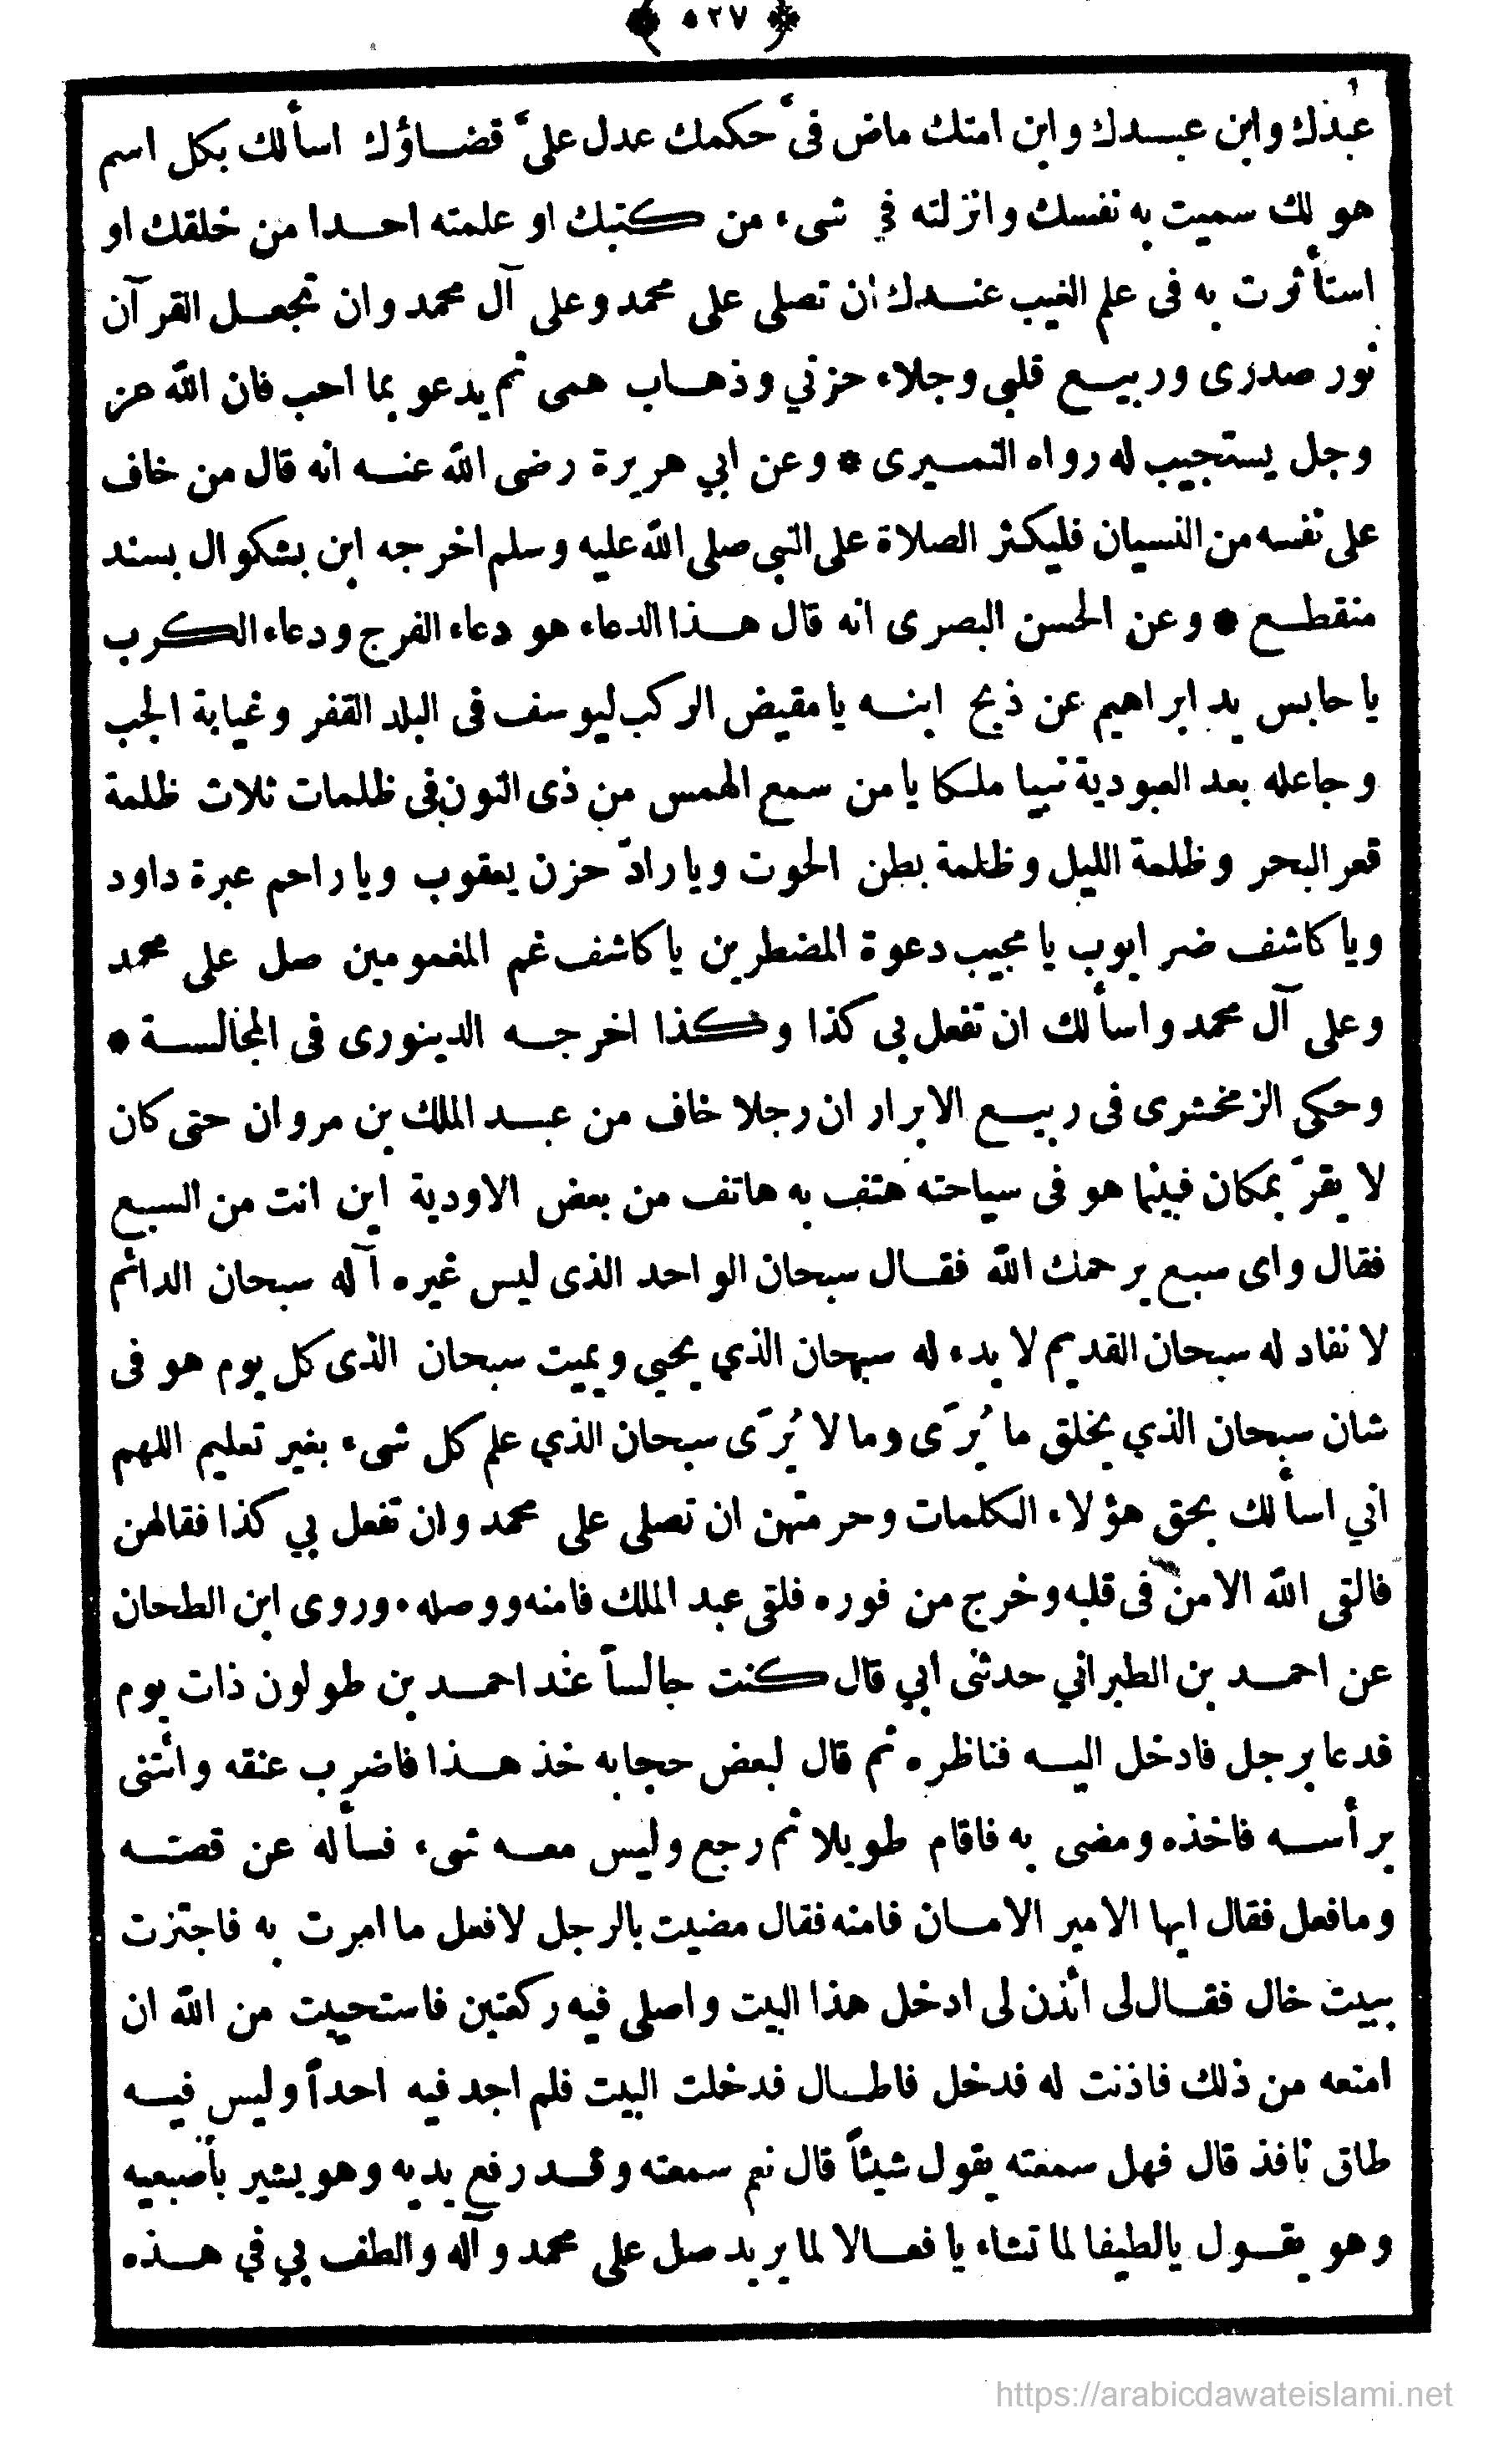 ﴿ ٥٢٧ ﴾
عبدك وابن عبدك وابن امتك ماض فىَّ حكمك عدل علىَّ قضاؤك اسألك بكل اسم
هو لك سميت به نفسك وانزلته في شىء من كتبك او علمته احدا من خلقك او
استأثرت به فى علم الغيب عندك ان تصلى على محمد وعلى آل محمد وان تجعل القرآن
نور صدرى وربيع قلبى وجلاء حزني وذهاب همى ثم يدعو بما احب فان الله عز
وجل يستجيب له رواه النميرى * وعن ابي هريرة رضى الله عنه انه قال من خاف
على نفسه من النسيان فليكثر الصلاة على النبى صلى الله عليه وسلم اخرجه ابن بشكوال بسند
منقطع * وعن الحسن البصرى انه قال هذا الدعاء هو دعاء الفرج ودعاء الكرب
يا حابس يد ابراهيم عن ذبح ابنه يا مقيض الركب ليوسف فى البلد القفر وغيابة الجب
وجاعله بعد العبودية نبيا ملكا يا من سمع الهمس من ذى النون فى ظلمات ثلاث ظلمة
قعر البحر وظلمة الليل وظلمة بطن الحوت ويا رادّ حزن يعقوب ويا راحم عبرة داود
ويا كاشف ضر ايوب يا مجيب دعوة المضطرين يا كاشف غم المغمومين صل على محمد
وعلى آل محمد واسألك ان تفعل بى كذا وكذا اخرجه الدينورى فى المجالسة *
وحكى الزمخشرى فى ربيع الابرار ان رجلا خاف من عبد الملك بن مروان حتى كان
لا يقرّ بمكان فبينما هو فى سياحته هتف به هاتف من بعض الاودية اين انت من السبع
فقال واى سبع يرحمك الله فقال سبحان الواحد الذى ليس غيره آله سبحان الدائم
لا نفاد له سبحان القديم لا بدء له سبحان الذي يحيي ويميت سبحان الذى كل يوم هو فى
شان سبحان الذي يخلق ما يُرَى وما لا يُرَى سبحان الذي علم كل شىء بغير تعليم اللهم
اني اسألك بحق هؤلاء الكلمات وحرمتهن ان تصلى على محمد وان تفعل بي كذا فقالهن
فالقى الله الامن فى قلبه وخرج من فوره فلقى عبد الملك فامنه ووصله * وروى ابن الطحان
عن احمد بن الطبراني حدثنى ابي قال كنت جالساً عند احمد بن طولون ذات يوم
فدعا برجل فادخل اليه فناظره ثم قال لبعض حجابه خذ هذا فاضرب عنقه وائتنى
برأسه فاخذه ومضى به فاقام طويلا ثم رجع وليس معه شىء فسأله عن قصته
وما فعل فقال ايها الامير الامان فامنه فقال مضيت بالرجل لافعل ما امرت به فاجتزت
ببيت خال فقال لى ائذن لى ادخل هذا البيت واصلى فيه ركعتين فاستحييت من الله ان
امنعه من ذلك فاذنت له فدخل فاطال فدخلت البيت فلم اجد فيه احداً وليس فيه
طاق نافذ قال فهل سمعته يقول شيئاً قال نعم سمعته وقد رفع يديه وهو يشير بأصبعيه
وهو يقول يا لطيفا لما تشاء يا فعالا لما يريد صل على محمد وآله والطف بي في هذه
https://arabicdawateislami.net